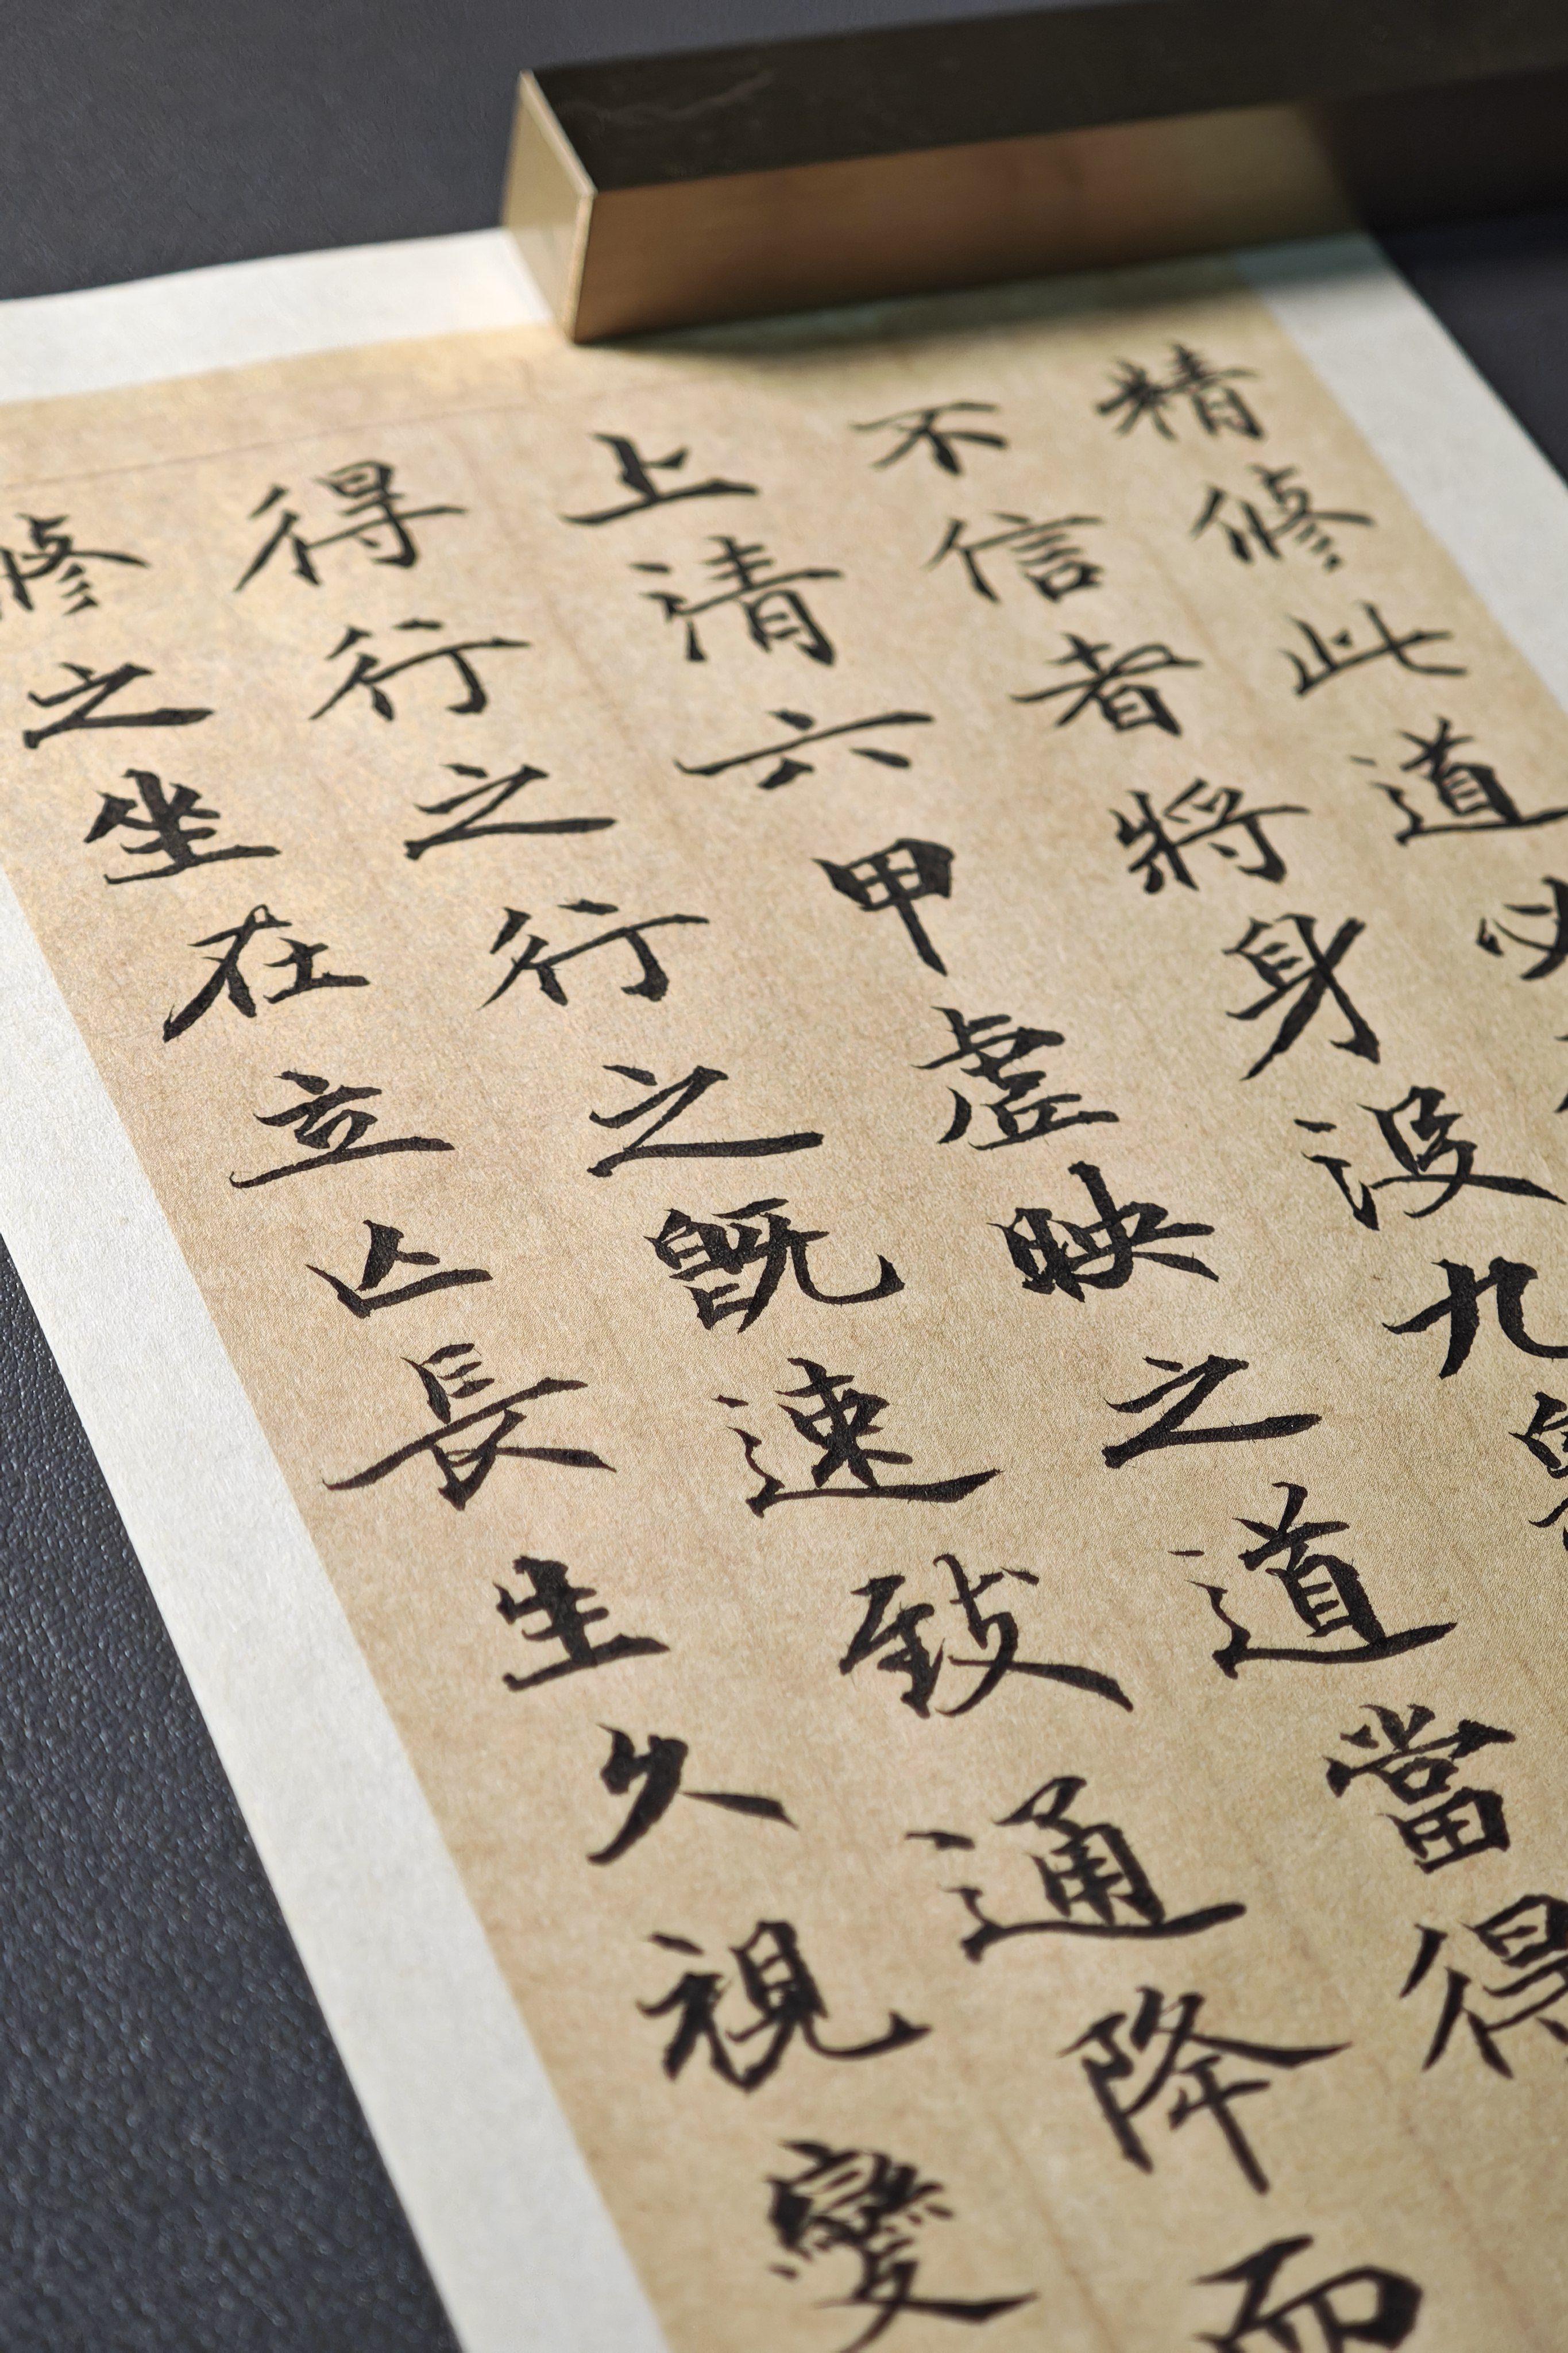 精修此道必
不信者將身沒九
上清六甲虛映之道當得
得行之行之既速致通降而
修之坐在立亡長生久視變